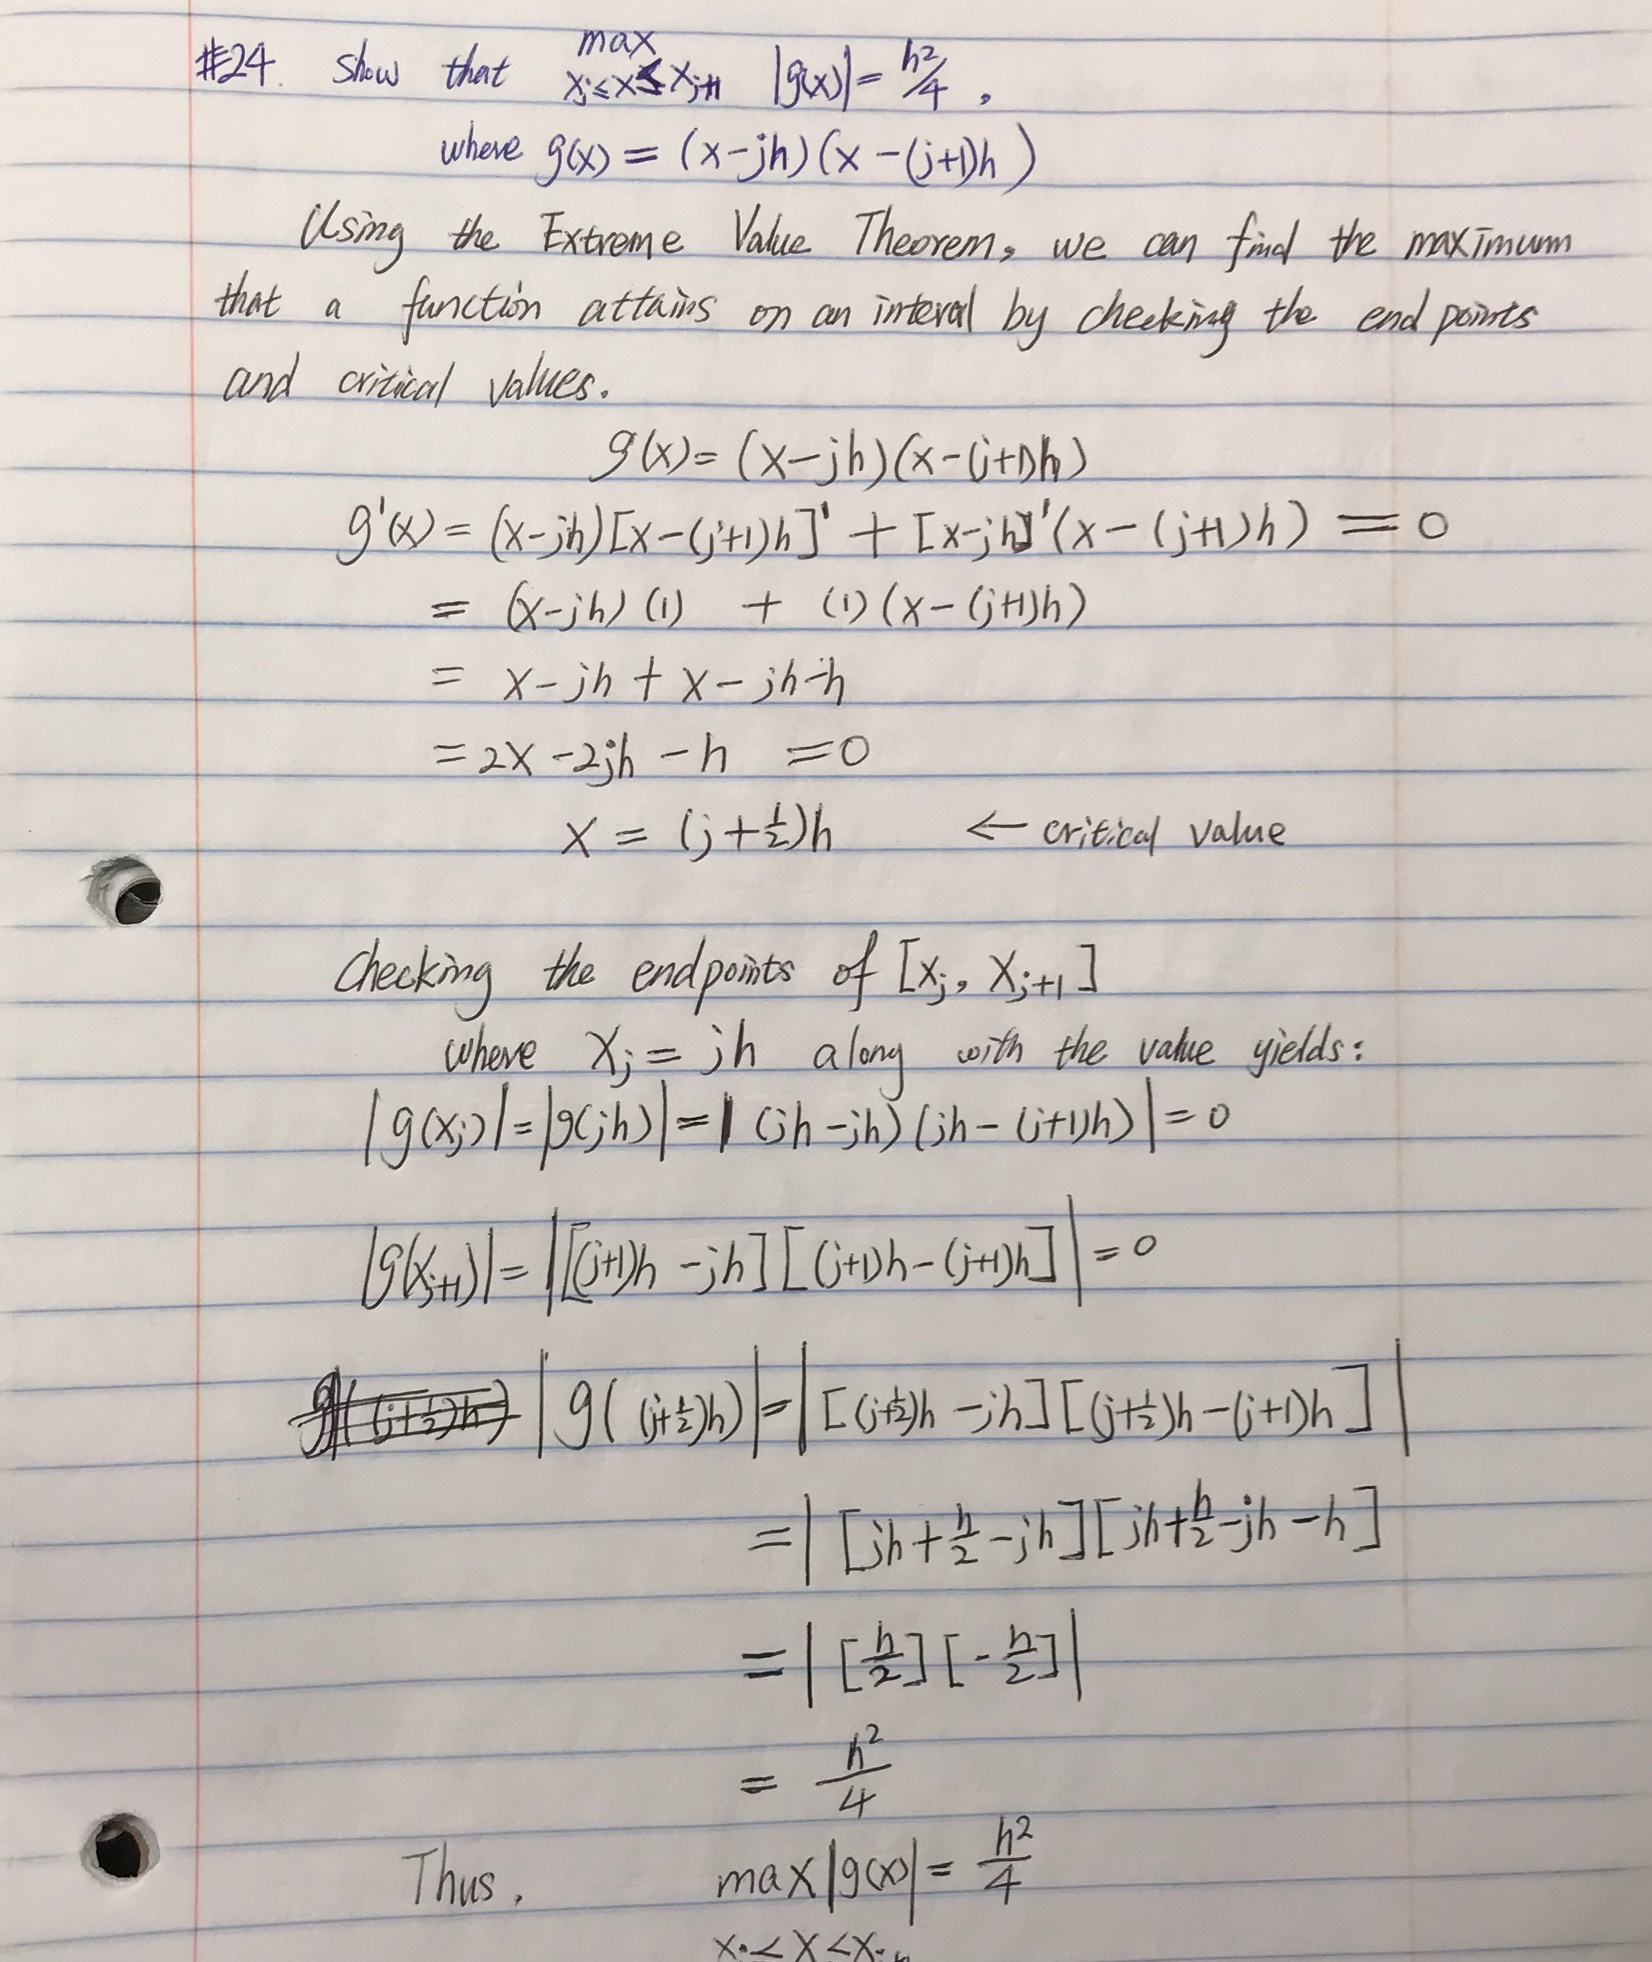 #24. Show that max |g(x)| = h²/4,
xⱼ ≤ x ≤ xⱼ₊₁
where g(x) = (x-jh)(x-(j+1)h)
Using the Extreme Value Theorem, we can find the maximum
that a function attains on an interval by checking the end points
and critical values.
g(x) = (x-jh)(x-(j+1)h)
g'(x) = (x-jh)[x-(j+1)h]' + [x-jh]'(x-(j+1)h) = 0
= (x-jh)(1) + (1)(x-(j+1)h)
= x-jh + x-jh-h
= 2x-2jh-h = 0
x = (j+½)h ← critical value
Checking the endpoints of [xⱼ, xⱼ₊₁]
where xⱼ = jh along with the value yields:
|g(xⱼ)| = |g(jh)| = |(jh-jh)(jh-(j+1)h)| = 0
|g(xⱼ₊₁)| = |[(j+1)h-jh][(j+1)h-(j+1)h]| = 0
g((j+½)h) |g((j+½)h)| = |[(j+½)h-jh][(j+½)h-(j+1)h]|
= |[jh+h/2-jh][jh+h/2-jh-h]
= |[h/2][-h/2]|
= h²/4
Thus, max|g(x)| = h²/4